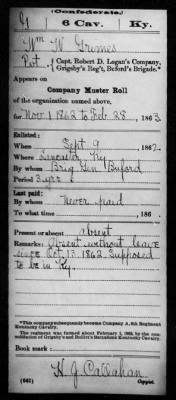 (Confederate.)
G 6 Cav. Ky.
Wm W Grimes
Pvt., Capt. Robert D. Logan's Company,
Grigsby's Reg't, Buford's Brigade.*
Appears on
Company Muster Roll
of the organization named above,
for Nov 1 1862 to Feb 28, 1863
Enlisted:
When Sept 9, 1862
Where Ky
By whom Brig Gen Buford
Period 3 yrs
Last paid:
By whom Never paid
To what time , 186
Present or absent absent
Remarks: Absent without leave
since Oct. 13. 1862. Supposed
to be in Ky.
*This company subsequently became Company A, 6th Regiment
Kentucky Cavalry.
The regiment was formed about February 1, 1863, by the con-
solidation of Grigsby's and Butler's Kentucky Cavalry.
Book mark:
H. J. Callahan
(641) Copyist.